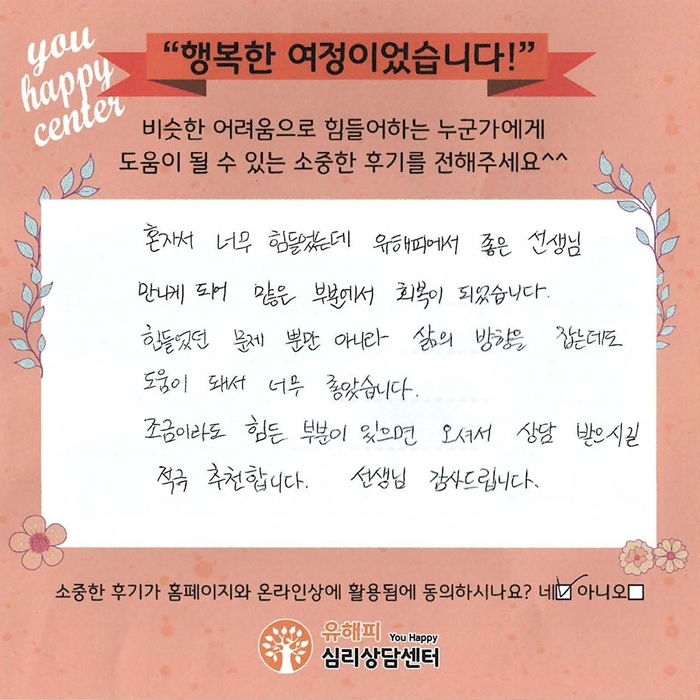 you
happy
center
“행복한 여정이었습니다!”
비슷한 어려움으로 힘들어하는 누군가에게
도움이 될 수 있는 소중한 후기를 전해주세요^^
혼자서 너무 힘들었는데 유해피에서 좋은 선생님
만나게 되어 많은 부분에서 회복이 되었습니다.
힘들었던 문제 뿐만 아니라 삶의 방향을 잡는데도
도움이 돼서 너무 좋았습니다.
조금이라도 힘든 부분이 있으면 오셔서 상담 받으시길
적극 추천합니다. 선생님 감사드립니다.
소중한 후기가 홈페이지와 온라인상에 활용됨에 동의하시나요? 네☑ 아니오☐
유해피 You Happy
심리상담센터